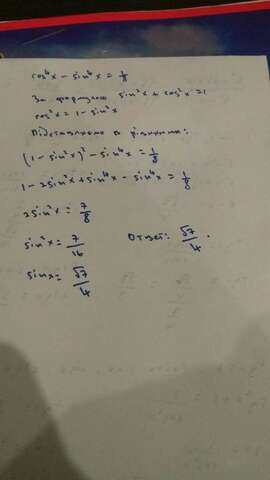 cos⁴x - sin⁴x = 1/8
За формулою sin²x + cos²x = 1
cos²x = 1 - sin²x
Підставляємо в рівняння:
(1 - sin²x)² - sin⁴x = 1/8
1 - 2sin²x + sin⁴x - sin⁴x = 1/8
2sin²x = 7/8
sin²x = 7/16
sinx = √7/4
Ответ: √7/4.